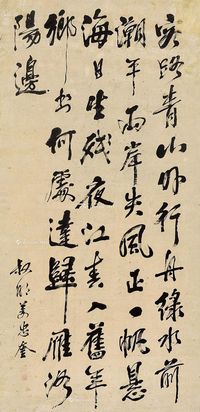 客路青山外行舟綠水前
潮平兩岸失風正一帆懸
海日生殘夜江春入舊年
鄉書何處達歸雁洛
陽邊
叔明姜忠奎